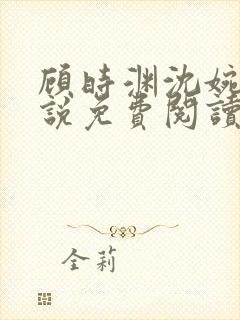 顾時渊沈婉
說免費閱讀
全莉